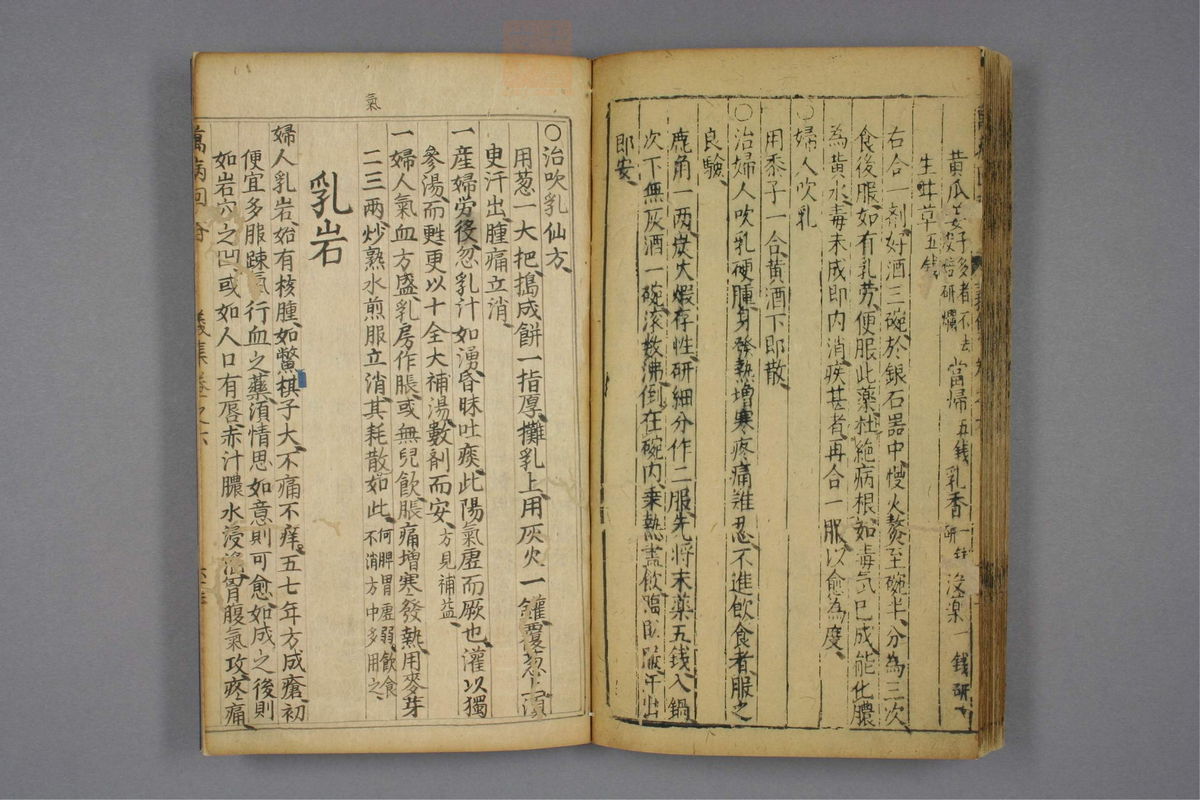 黄瓜蔞子多者不去 當歸五錢 乳香一錢研 沒藥一錢研
生甘草五錢
右合一劑好酒三碗於銀石器中慢火熬至碗半分為三次
食後服如有乳劳便服此藥杜絶病根如毒氣已成能化膿
為黄水毒未成即内消疾甚者再合一服以愈為度
〇婦人吹乳
用黍子一合黄酒下即散
〇治婦人吹乳硬腫身發熱增寒疼痛難忍不進飲食者服之
良驗
鹿角一两炭火煅存性研細分作二服先將末藥五錢入鍋
次下無灰酒一碗滚数沸倒在碗内乗熱盡飲臨臥服汗出
即安
〇治吹乳仙方
用葱一大把搗成餅一指厚攤乳上用灰火一罐覆葱上須
臾汗出腫痛立消
一産婦劳後忽乳汁如湧昏昧吐痰此陽氣虚而厥也灌以獨
參湯而甦更以十全大補湯數劑而安方見補益
一婦人氣血方盛乳房作脹或無兒飲脹痛增寒發熱用麥芽
二三两炒熟水煎服立消其耗散如此何脾胃虚弱飲食不消方中多用之
氣
乳岩
婦人乳岩始有核腫如鱉棋子大不痛不痒五七年方成瘡初
便宜多服踈氣行血之藥須情思如意則可愈如成之後則
如岩穴之凹或如人口有唇赤汁膿水浸滛胷腹氣攻疼痛
萬病回春